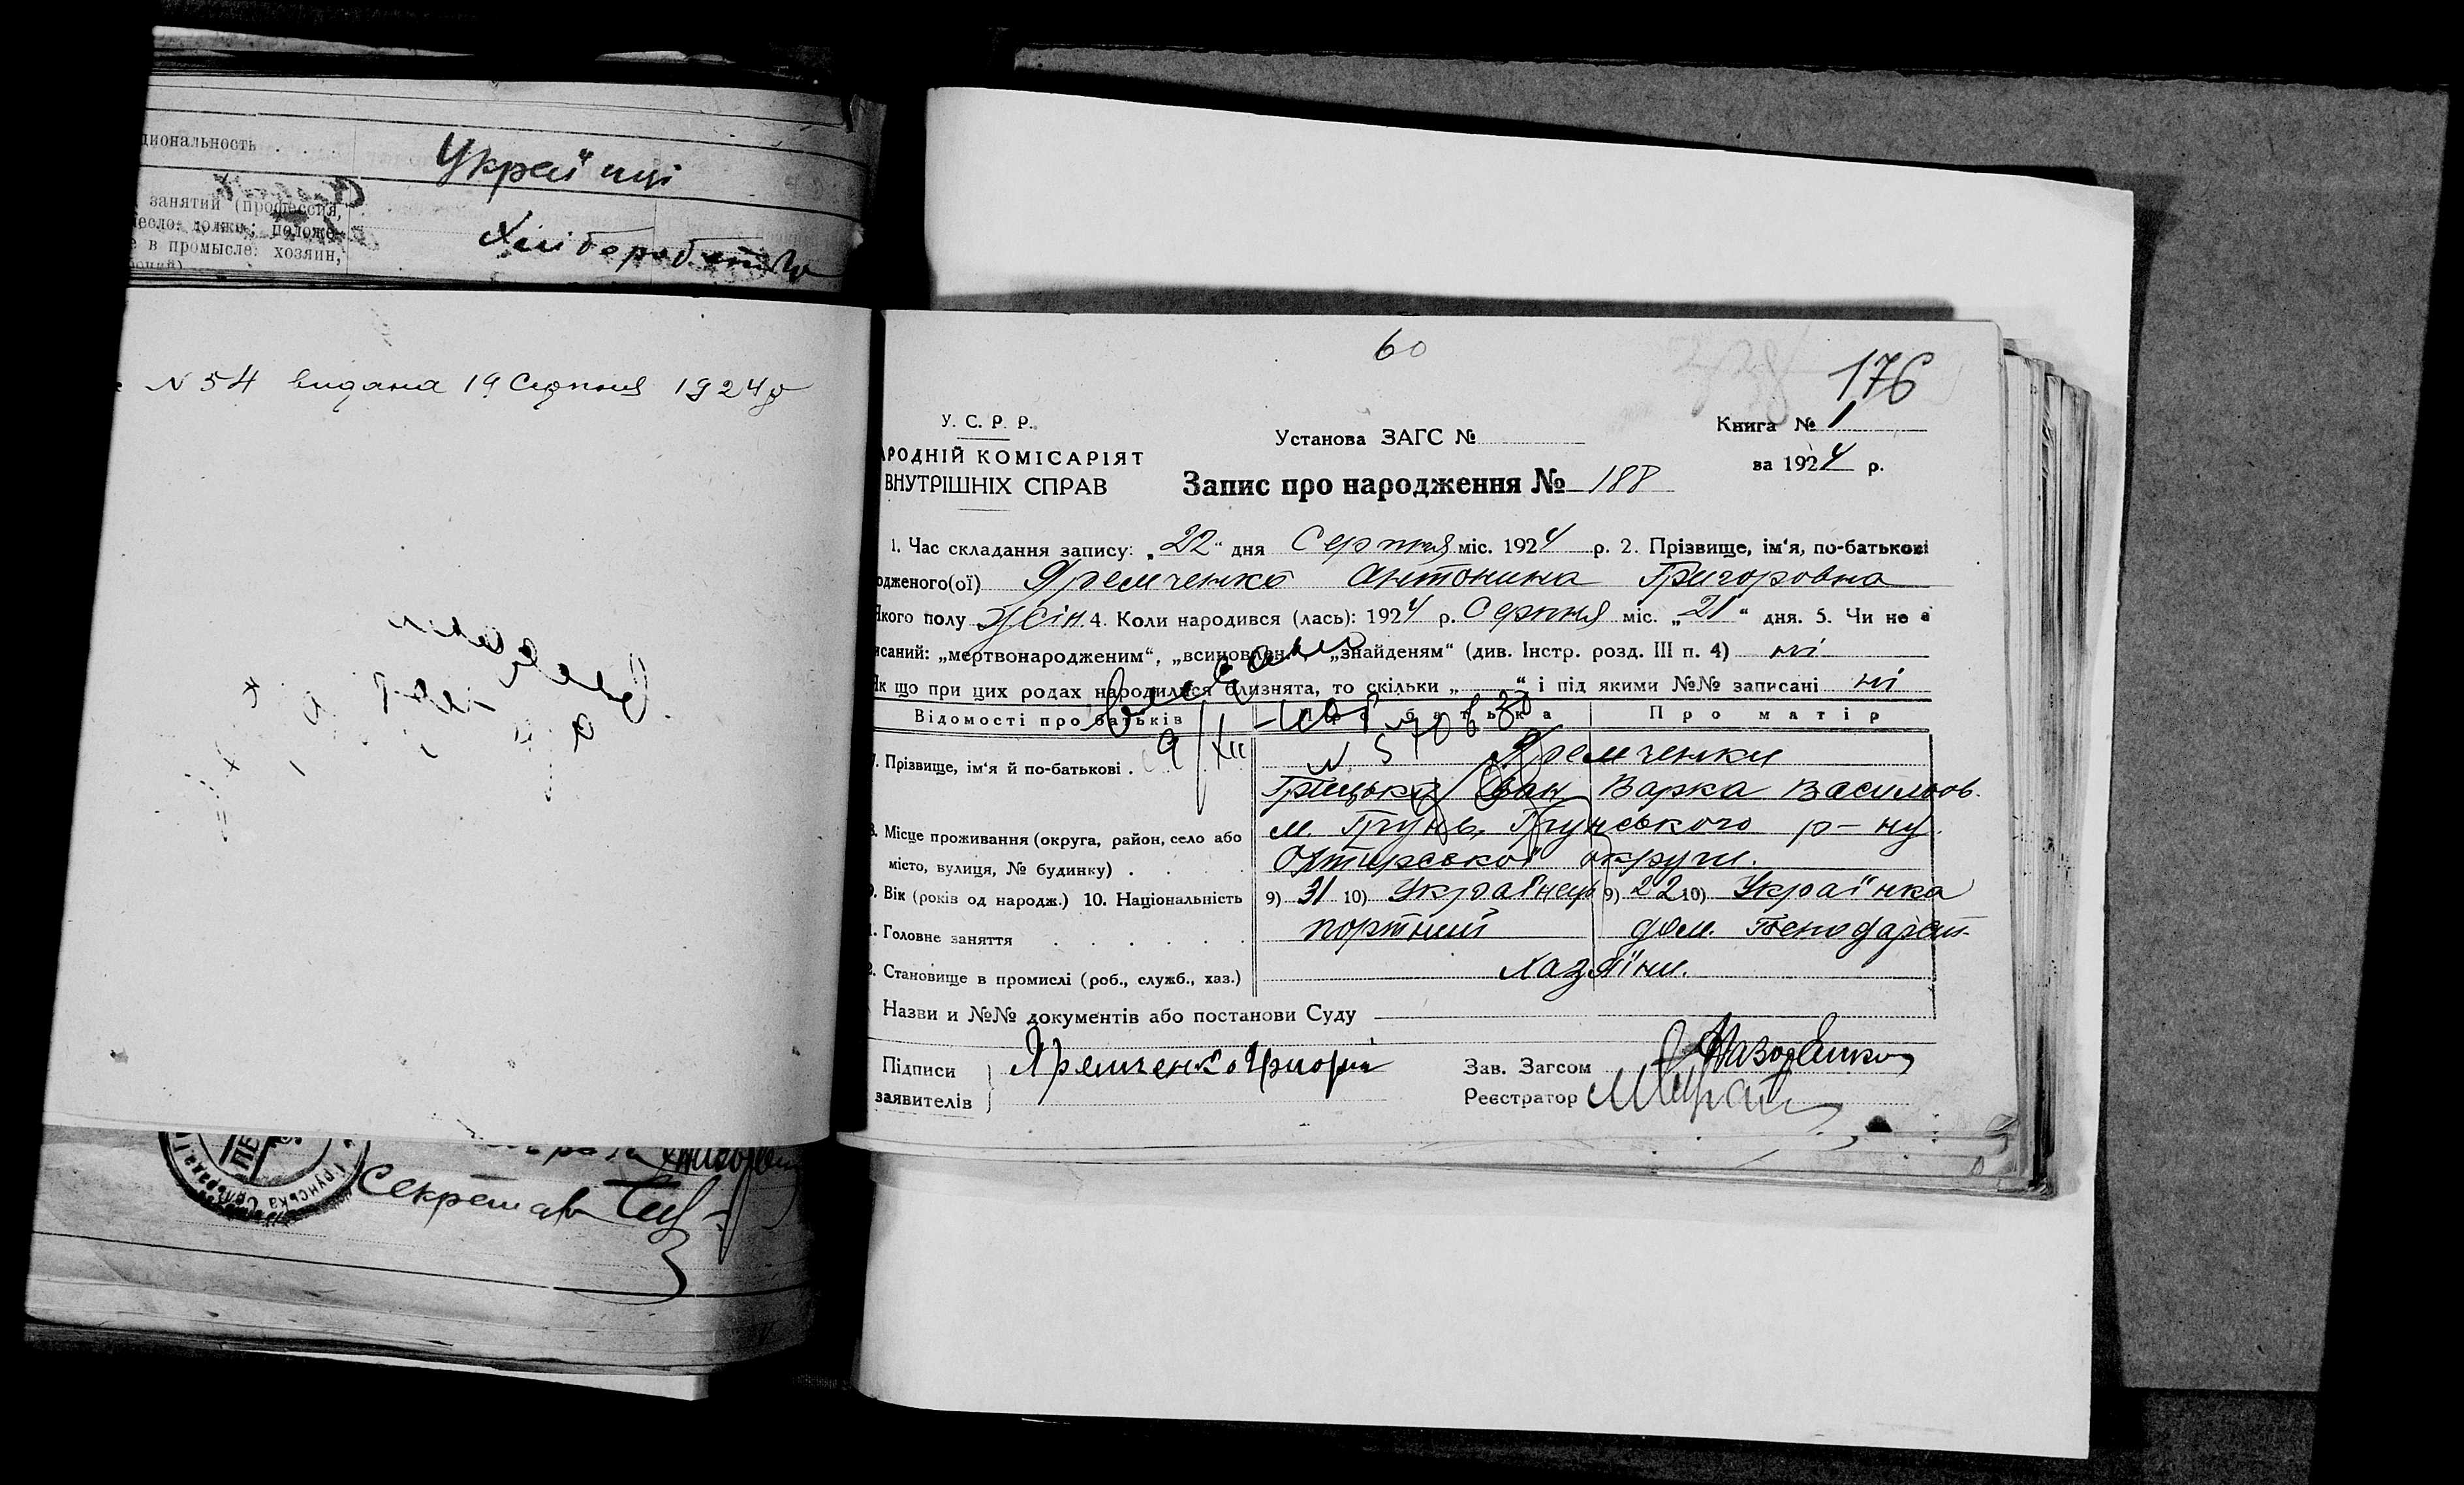 циональность . . . .
Украйнці
занятий (профессия,
есло: должн.; положе-
е в промысле: хозяин,
Хліборобство
№ 54 видана 19 Серпня 1924 р
Грунська
Секретар
60
176
У. С. Р. Р.
АРОДНІЙ КОМІСАРІЯТ
ВНУТРІШНІХ СПРАВ
Установа ЗАГС №
Книга № 1
за 1924 р.
Запис про народження № 188
1. Час складання запису: „22“ дня Серпня міс. 1924 р. 2. Прізвище, ім‘я, по-батькові
одженого(ої) Яремченко Антонина Григоровна
Якого полу жін. 4. Коли народився (лась): 1924 р. Серпня міс. „21“ дня. 5. Чи не є
исаний: „мертвонародженим“, „всиновлен“, „знайденям“ (див. Інстр. розд. III п. 4) ні
Як що при цих родах народилися близнята, то скільки „ “ і під якими №№ записані ні
Відомості про батьків Про батька Про матір
9/XII
7. Прізвище, ім‘я й по-батькові . Яремченки
Грицько Іван Варка Васильов.
8. Місце проживання (округа, район, село або м. Грунь, Грунського р-ну
місто, вулиця, № будинку) . . . Охтирської округи.
9. Вік (років од народж.) 10. Національність 9) 31 10) Українець 9) 22 10) Українка
11. Головне заняття . . . . . . портний дом. господарст.
12. Становище в промислі (роб., служб., хаз.) Хазяїни.
Назви и №№ документів або постанови Суду
Підписи Яремченко Григорій
заявителів
Зав. Загсом
Реєстратор